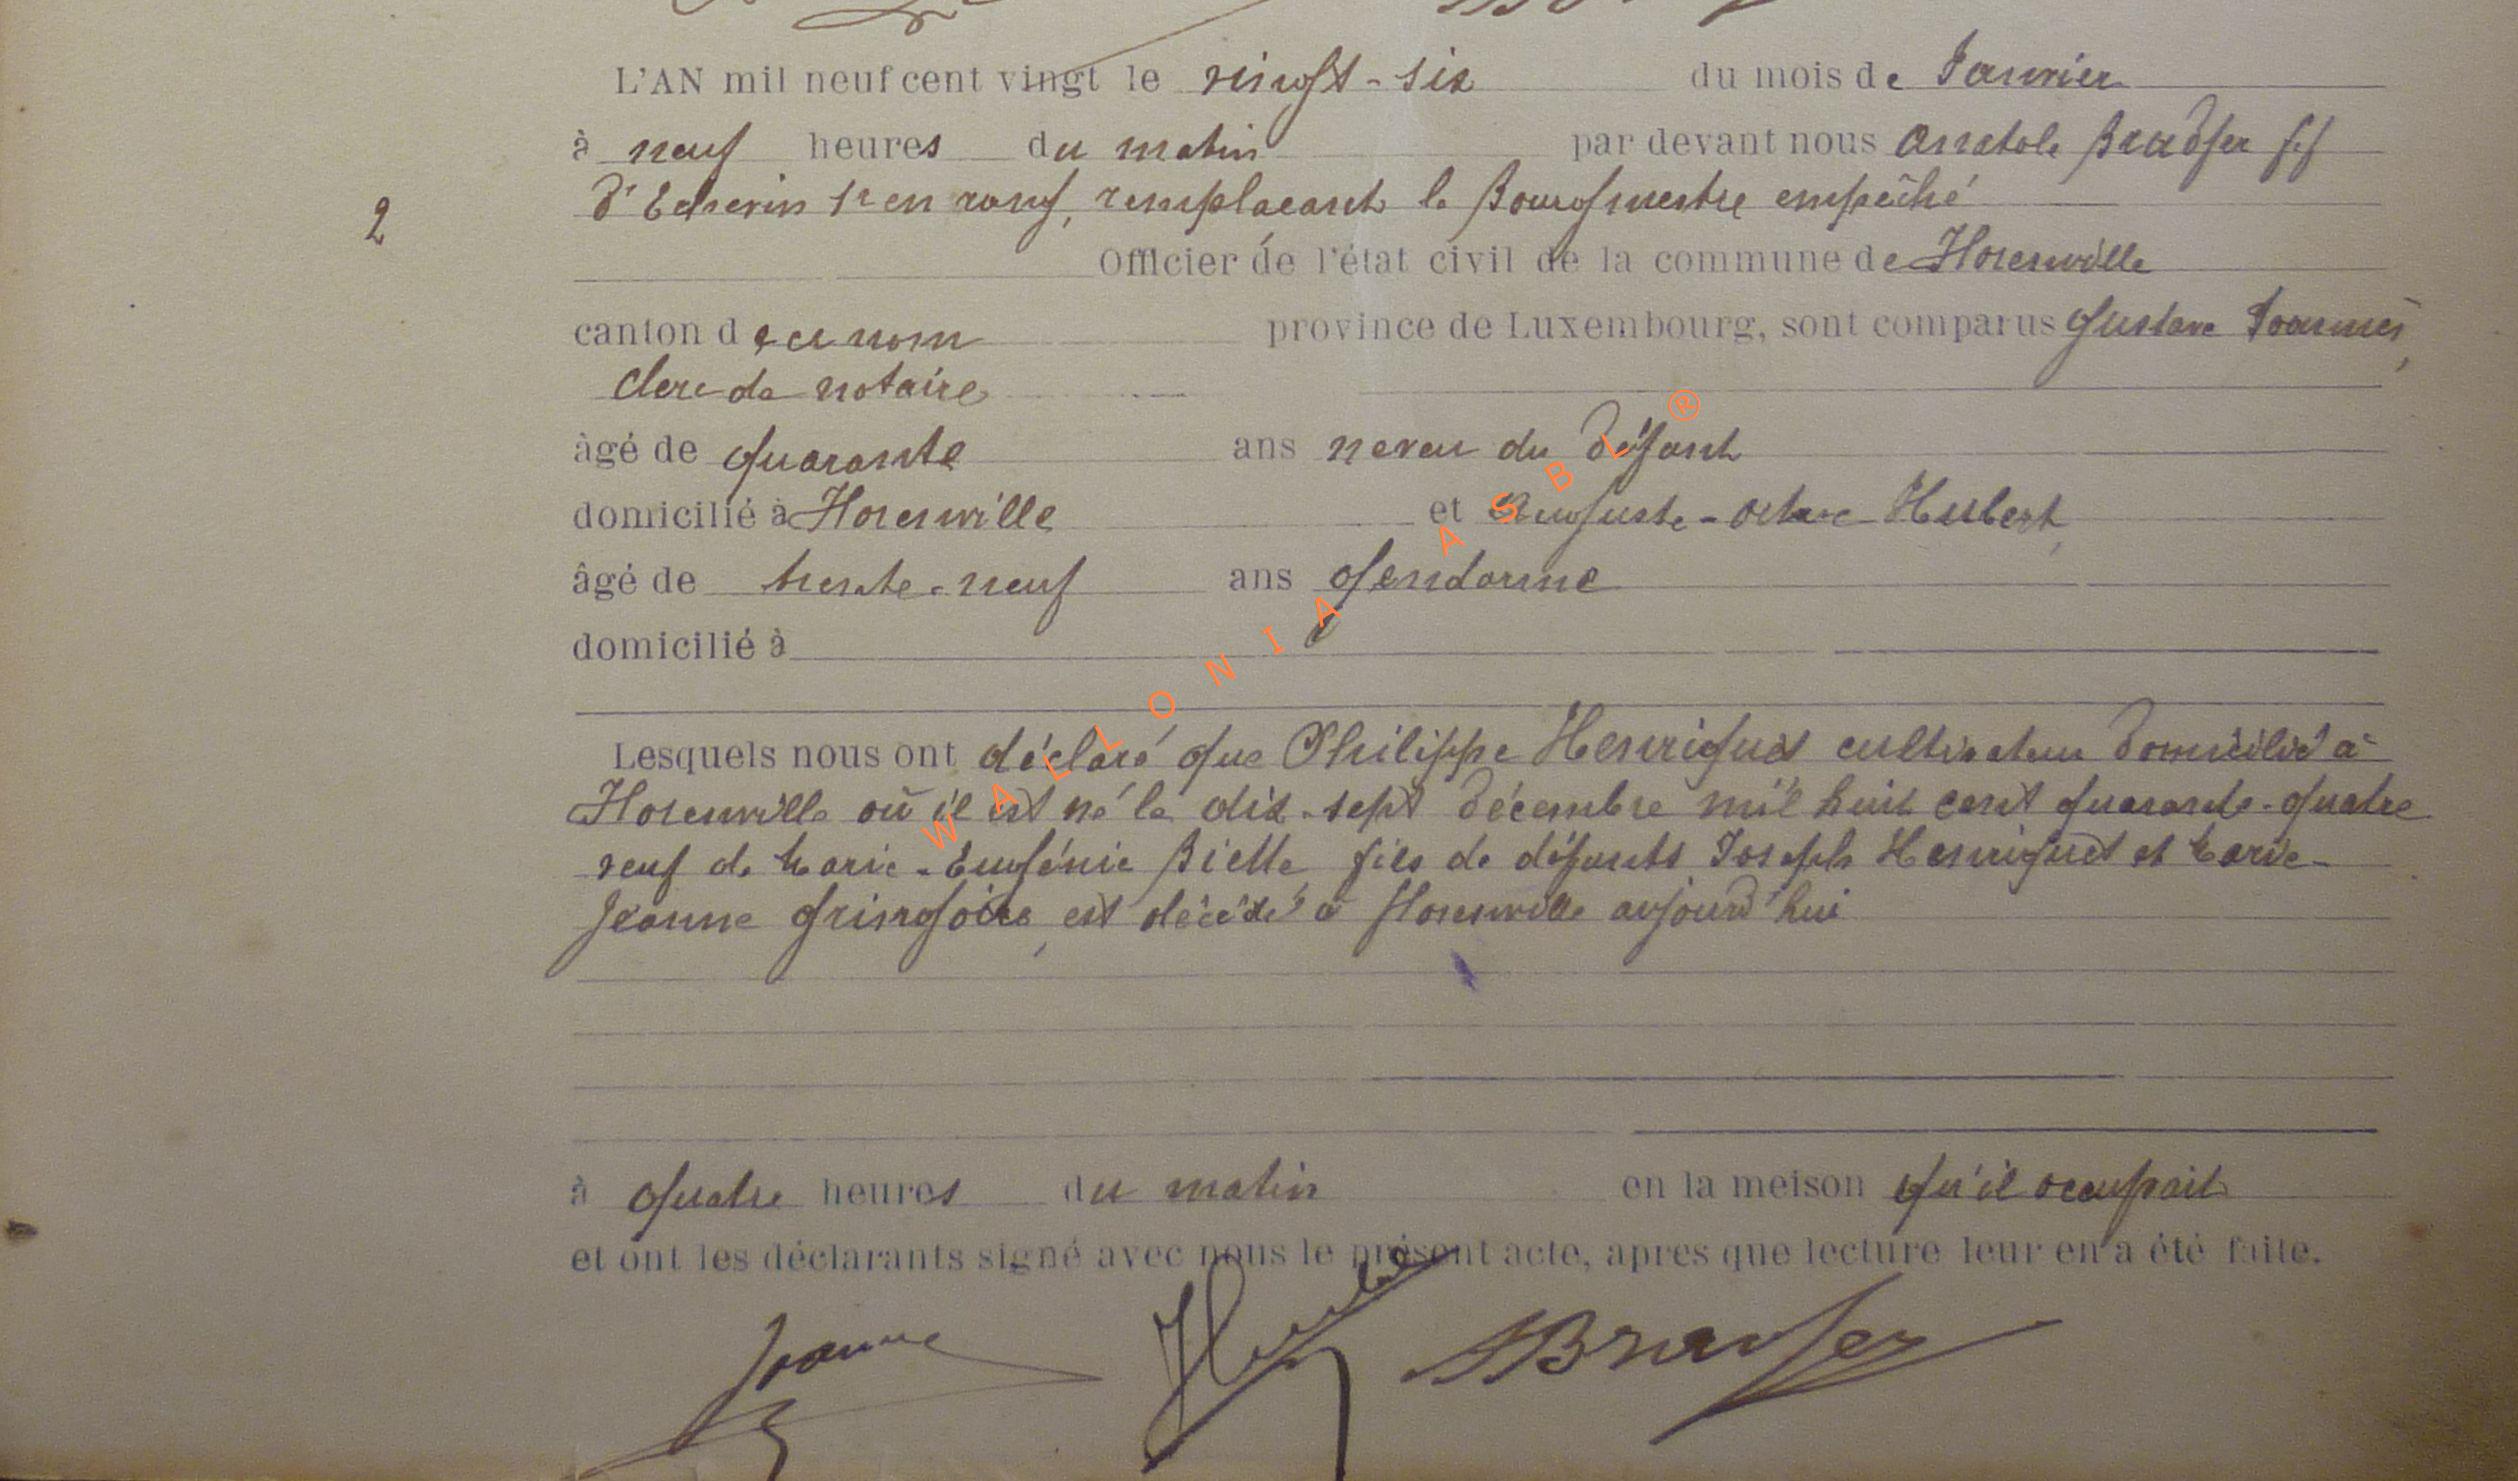 L'AN mil neuf cent vingt le vingt-six du mois de Janvier
à neuf heures du matin par devant nous Anatole Bradfer ff
d'Echevin 1r en rang, remplacant le Bourgmestre empêché
2
Officier de l'état civil de la commune de Florenville
canton de ce nom province de Luxembourg, sont comparus Gustave
clerc de notaire
âgé de quarante ans neveu du défunt
domicilié à Florenville et Auguste-Octave Hubert,
âgé de trente-neuf ans gendarme
domicilié à
Lesquels nous ont déclaré que Philippe Henriquet cultivateur domicilié à
Florenville où il est né le dix-sept décembre mil huit cent quarante-quatre
veuf de Marie-Eugénie Bielle fils de défunts Joseph Henriquet et Marie-
Jeanne Gringoire, est décédé à Florenville aujourd'hui
à quatre heures du matin en la meison qu'il occupait
et ont les déclarants signé avec nous le présent acte, apres que lecture leur en a été faite.
Hubert ABradfer
WALLONIA ASBL ®